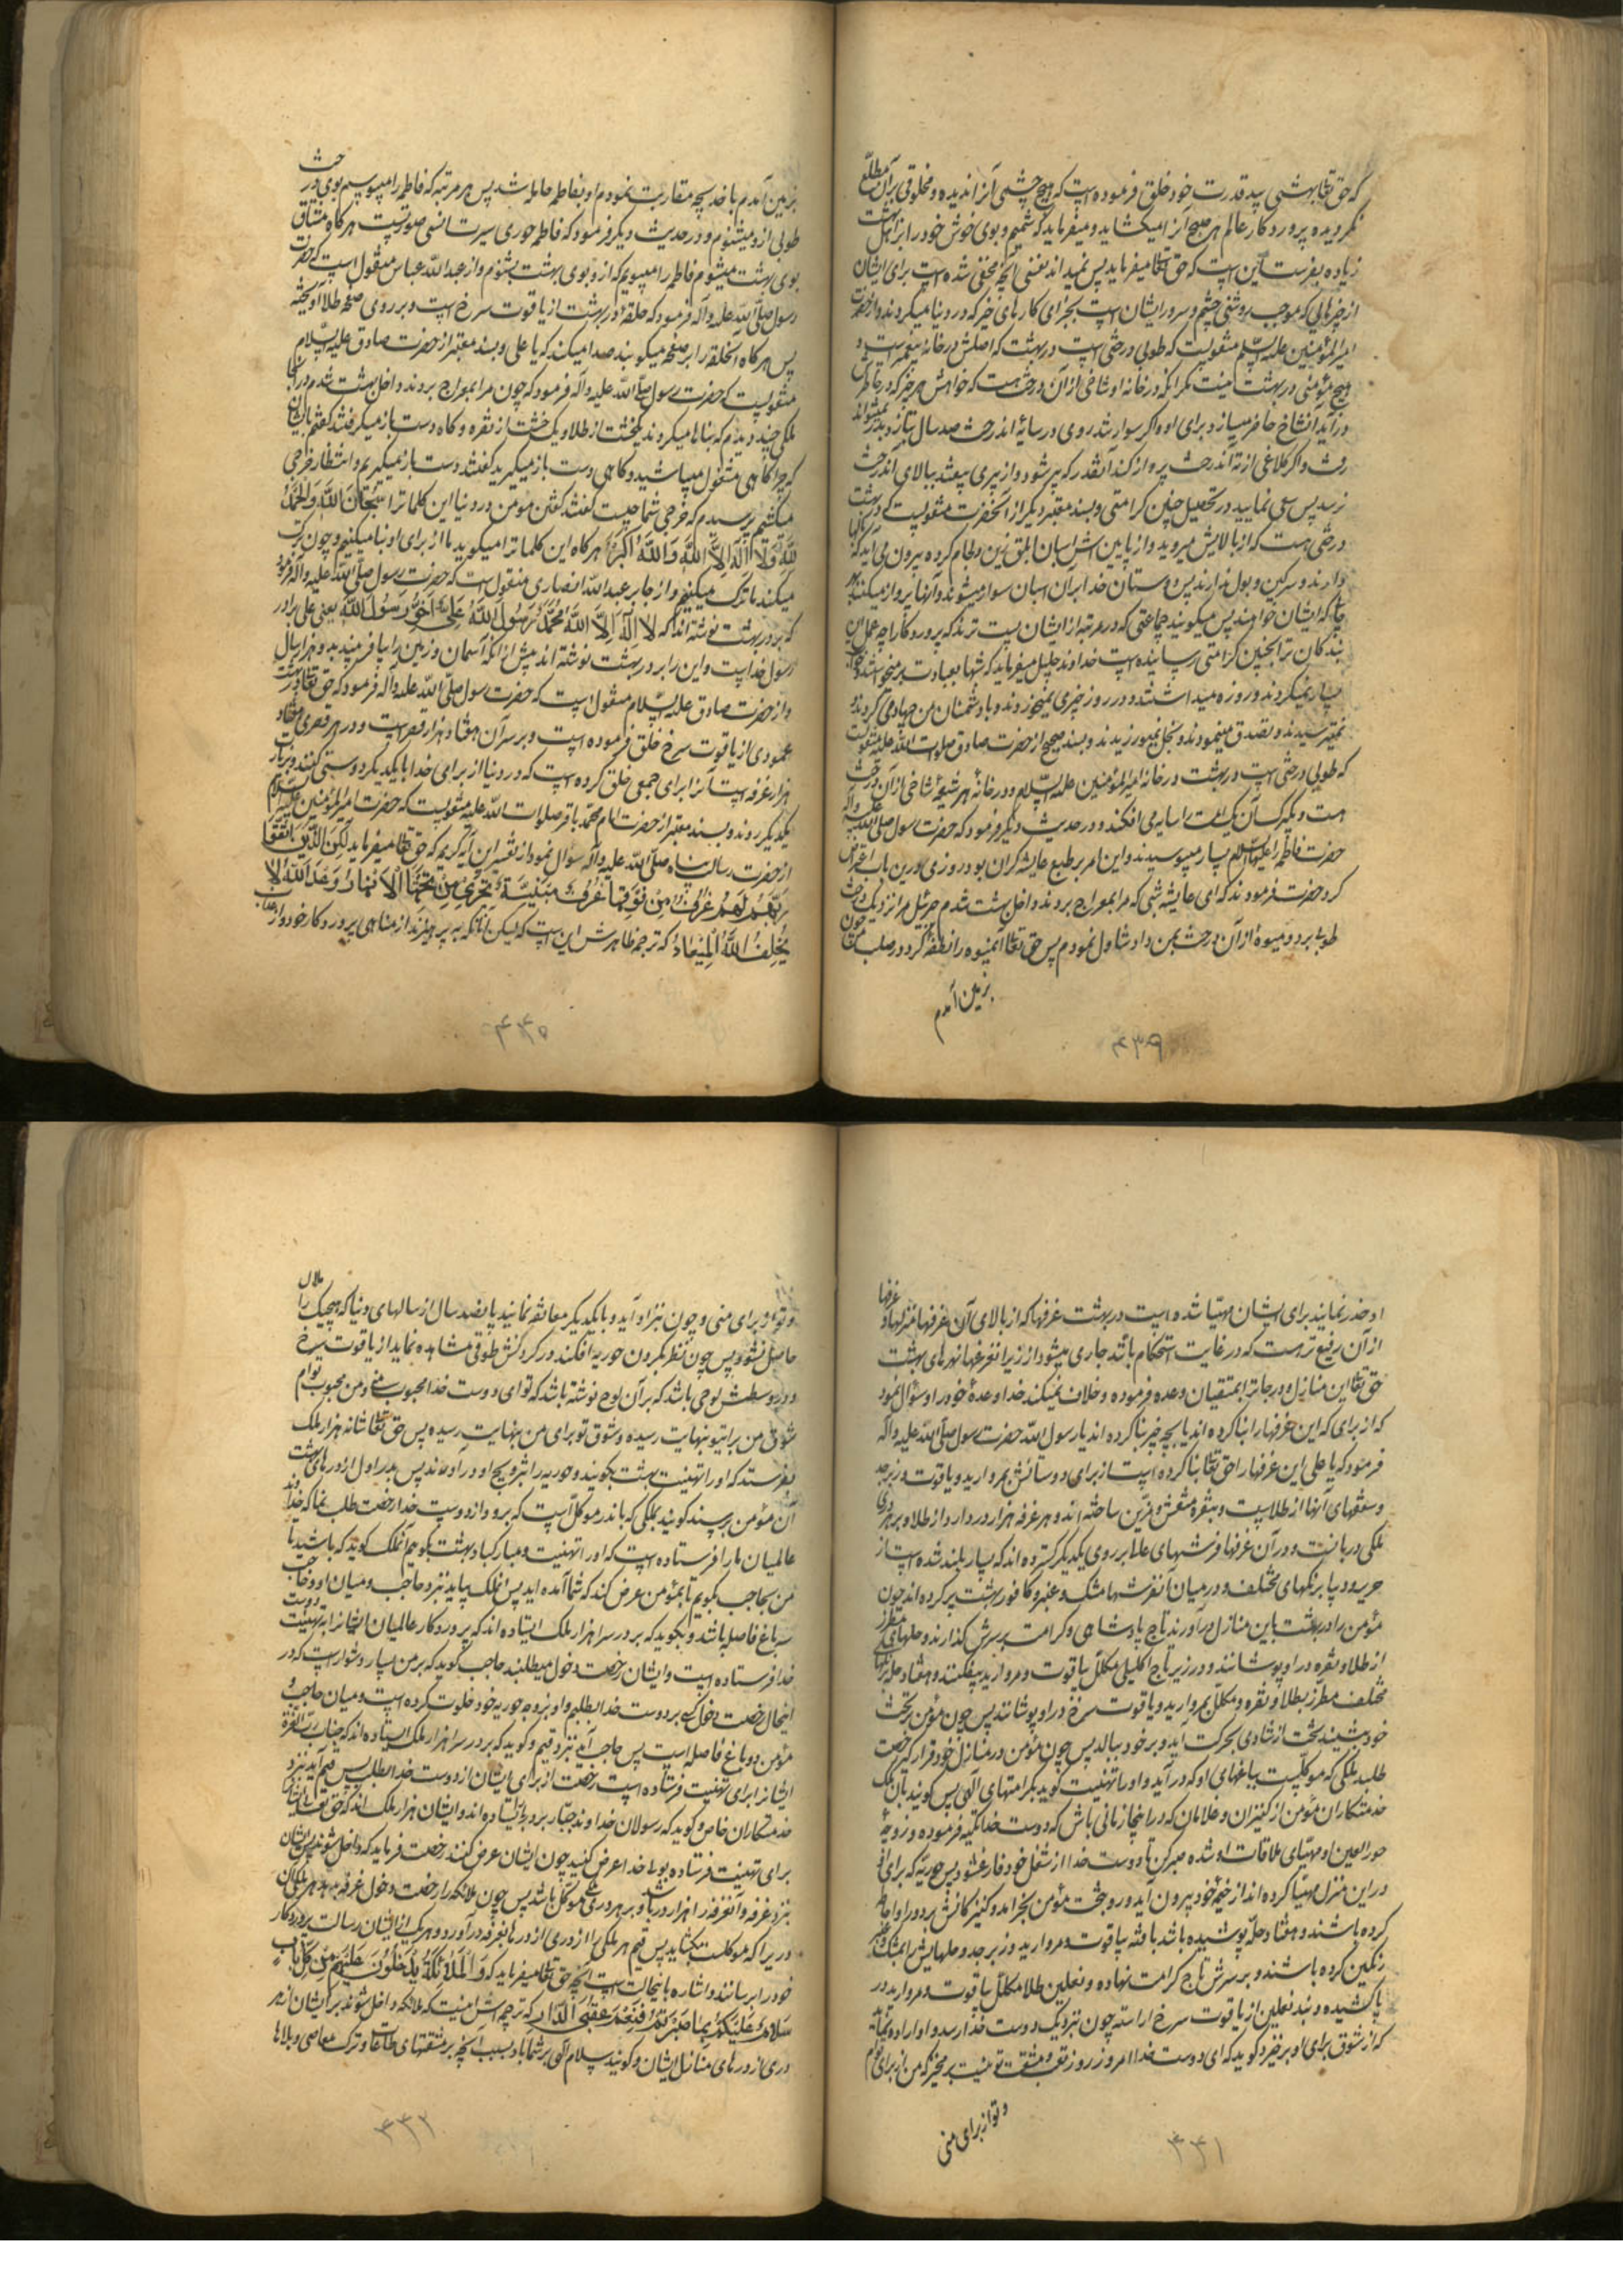 که حق تعالی بهشتی بید قدرت خود خلق فرموده است که هیچ چشمی آنرا ندیده و مخلوقی برآن مطلع
نکردیده پروردکار عالم هر صبح آنرا میکشاید و میفرماید که شمیم و بوی خوش خود را برای اهل بهشت
زیاده بفرست این است که حق تعالی میفرماید پس نمیداند نفسی آنچه مخفی شده است برای ایشان
از چیزهائی که موجب روشنی چشم و سرور ایشان است بجزای کارهای خیر که در دنیا میکردند و از حضرت
امیرالمؤمنین علیه السلام منقولست که طوبی درختی است در بهشت که اصلش در خانه پیغمبر است و
هیچ مؤمنی در بهشت نیست مکر آنکه در خانه او شاخی از آن درخت هست که خواهش هر چیز که در خاطرش
درآید آن شاخ حاضر میسازد برای او و اکر سوار تند روی در سایهٔ آن درخت صد سال بتازد بدر نمیتواند
رفت و اکر کلاغی از ته آن درخت پرواز کند آنقدر که پیر شود و از پیری بیفتد ببالای آن درخت
نرسد پس سعی نمایید در تحصیل چنین کرامتی و بسند معتبر دیکر از آنحضرت منقولست که در بهشت
درختی هست که از بالایش حله میروید و از پایین اش اسبان ابلق با زین و لجام کرده بیرون می آید که
دارند و سرکین و بول ندارند پس دوستان خدا بر آن اسبان سوار میشوند و آنها پرواز میکنند بهر
جا که ایشان خواهند پس میکویند جماعتی که در مرتبه از ایشان پست ترند که پروردکارا چه عمل این
بندکان ترا بچنین کرامتی رسانیده است خداوند جلیل میفرماید که شبها بعبادت بر میخواستند و خواب
بسیار نمیکردند و روزه میداشتند و در روز چیزی نمیخوردند و با دشمنان من جهاد میکردند و
نمیترسیدند و تصدق مینمودند و بخل نمیورزیدند و بسند صحیح از حضرت صادق صلوات الله علیه منقولست
که طوبی درختی است در بهشت در خانه امیرالمؤمنین علیه السلام و در خانهٔ هر شیعهٔ شاخی از آن درخت
هست و یکبرک آن یک امت را سایه می افکند و در حدیث دیکر فرمود که حضرت رسول صلی الله علیه وآله
حضرت فاطمه را علیها السلام بسیار میبوسیدند و این امر بر طبع عایشه کران بود روزی درین باب اعتراض
کرد حضرت فرمودند که ای عایشه شبی که مرا بمعراج بردند و داخل بهشت شدم جبرئیل مرا نزدیک درخت
طوبی برد و میوهٔ از آن درخت بمن داد تناول نمودم پس حق تعالی آنمیوه را نطفه کرد در صلب من چون
بزمین آمدم
۴۳۹
بزمین آمدم با خدیجه مقاربت نمودم او بفاطمه حامله شد پس هر مرتبه که فاطمه را میبوسیم بوی درخت
طوبی از او میشنوم و در حدیث دیکر فرمود که فاطمه حوری سیرت انسی صورتست هرکاه مشتاق
بوی بهشت میشوم فاطمه را میبویم که از او بوی بهشت بشنوم و از عبدالله عباس منقول است که حضرت
رسول صلی الله علیه وآله فرمود که حلقهٔ در بهشت از یاقوت سرخ است و بر روی صفحه طلا آویخته
پس هرکاه آنحلقه را بر صفحه میکوبند صدا میکند که یا علی و بسند معتبر از حضرت صادق علیه السلام
منقولست که حضرت رسول صلی الله علیه وآله فرمود که چون مرا بمعراج بردند و داخل بهشت شدم در آنجا
ملکی چند دیدم که بناها میکردند یکخشت از طلا و یک خشت از نقره و کاه دست باز میکرفتند کفتم بایشان
که چرا کاهی مشغول میباشید و کاهی دست باز میکیرید کفتند دست باز میکیریم و انتظار خرجی
میکشیم پرسیدم که خرجی شما چیست کفتند کفتن مؤمن در دنیا این کلمات را سُبْحَانَ اللهِ وَالْحَمْدُ
لِلّٰهِ وَلَا اِلٰهَ اِلَّا اللّٰهُ وَاللّٰهُ اَکْبَرُ هرکاه این کلمات را میکوید ما از برای او بنا میکنیم و چون ترک
میکند ما ترک میکنیم و از جابر عبدالله انصاری منقول است که حضرت رسول صلی الله علیه وآله فرمود
که بر در بهشت نوشته اند که لا اِلٰهَ اِلَّا اللّٰهُ مُحَمَّدٌ رَسُولُ اللّٰهِ عَلِیٌّ اَخُو رَسُولِ اللّٰهِ یعنی علی برادر
رسول خداست و این را بر در بهشت نوشته اند پیش از آنکه آسمان و زمین را بیافریند بدو هزار سال
و از حضرت صادق علیه السلام منقول است که حضرت رسول صلی الله علیه وآله فرمود که حق تعالی در بهشت
عمودی از یاقوت سرخ خلق فرموده است و بر سر آن هفتاد هزار قصر است و در هر قصری هفتاد
هزار غرفه است آنرا برای جمعی خلق کرده است که در دنیا از برای خدا با یکدیکر دوستی کنند و بزیارت
یکدیکر روند و بسند معتبر از حضرت امام محمد باقر صلوات الله علیه منقولست که حضرت امیرالمؤمنین علیه السلام
از حضرت رسالت پناه صلی الله علیه وآله سؤال نمود از تفسیر این آیه کریم که حق تعالی میفرماید لٰکِنِ الَّذِینَ اتَّقَوْا
رَبَّهُمْ لَهُمْ غُرَفٌ مِنْ فَوْقِهَا غُرَفٌ مَبْنِیَّةٌ تَجْرِی مِنْ تَحْتِهَا الْاَنْهَارُ وَعْدَ اللّٰهِ لَا
یُخْلِفُ اللّٰهُ الْمِیعَادَ که ترجمهٔ ظاهرش این است که لیکن آنانکه به پرهیزند از مناهی پروردکار خود و از عذاب
۴۴۰
او حذر نمایند برای ایشان مهیا شده است در بهشت غرفها که از بالای آن غرفها منزلها و غرفها
از آن رفیع تر است که در غایت استحکام باشد جاری میشود از زیر آنغرفها نهرهای بهشت
حق تعالی این منازل و درجات را بمتقیان وعده فرموده و خلاف نمیکند خدا وعدهٔ خود را و سؤال نمود
که از برای که این غرفها را بنا کرده اند یا بچه چیز بنا کرده اند یا رسول الله حضرت رسول صلی الله علیه وآله
فرمود که یا علی این غرفها را حق تعالی بنا کرده است از برای دوستانش بمروارید و یاقوت و زبرجد
و سقفهای آنها از طلاست و بنقره منقش و مزین ساخته اند و هر غرفه هزار در دارد از طلا و بر هر دری
ملکی دربانست و در آن غرفها فرشهای عالی بر روی یکدیکر کسترده اند که بسیار بلند شده است از
حریر و دیبا برنکهای مختلف و در میان آنفرشها مشک و عنبر و کافور بهشت پر کرده اند چون
مؤمن را در بهشت باین منازل درآورند تاج پادشاهی و کرامت بر سرش کذارند و حلهای مطرز
از طلا و نقره در او پوشانند و در زیر تاج اکلیلی مکلل بیاقوت و مروارید بیفکنند و هفتاد حله برنکهای
مختلف مطرز بطلا و نقره و مکلل بمروارید و یاقوت سرخ در او پوشانند پس چون مؤمن بر تخت
خود نشیند تخت از شادی بحرکت آید و بر خود ببالد پس چون مؤمن در منازل خود قرار کیرد رخصت
طلبد ملکی که موکلست بباغهای او که درآید و او را تهنیت کوید بکرامتهای الهی پس کویند بآن ملک
خدمتکاران مؤمن از کنیزان و غلامان که در اینجا زمانی باش که دوست خدا تکیه فرموده و زوجهٔ
حور العین او مهیای ملاقات او شده صبر کن تا دوست خدا از شغل خود فارغ شود پس حوریه که برای او
در این منزل مهیا کرده اند از خیمهٔ خود بیرون آید و رو بتخت مؤمن بخرامد و کنیزکانش بر دور او احاطه
کرده باشند و هفتاد حله پوشیده باشد بافته بیاقوت و مروارید و زبرجد و حلهایش را بمشک و عنبر
رنکین کرده باشند و بر سرش تاج کرامت نهاده و نعلین طلا مکلل بیاقوت و مروارید در
پا کشیده و بند نعلین از یاقوت سرخ آراسته چون بنزدیک دوست خدا رسد و او اراده نماید
که از شوق برای او برخیزد کوید که ای دوست خدا امروز روز تعب و مشقت تو نیست بر مخیز که من از برای توام
و تو از برای منی
۴۴۱
و تو از برای منی و چون بنزد او آید و با یکدیکر معانقه نمایند پانصد سال از سالهای دنیا که هیچیک را ملال
حاصل نشود پس چون نظر بکردن حوریه افکند در کردنش طوقی مشاهده نماید از یاقوت سرخ
و در وسطش لوحی باشد که بر آن لوح نوشته باشد که تو ای دوست خدا محبوب منی و من محبوب توام
شوق من برای تو بنهایت رسیده و شوق تو برای من بنهایت رسیده پس حق تعالی شانه هزار ملک
بفرستد که او را تهنیت بهشت بکویند و حوریه را بتزویج او درآورند پس بدر اول از درهای بهشت
آن مؤمن برسند کویند بملکی که باندر موکل است که برو و از دوست خدا رخصت طلب نما که خداوند
عالمیان ما را فرستاده است که او را تهنیت و مبارکباد بهشت بکوییم آنملک کوید که باشید تا
من بحاجب بکویم تا بمؤمن عرض کند که شما آمده اید پس آنملک بیاید بنزد حاجب و میان او و حاجب
سه باغ فاصله باشد و بکوید که بر در سرا هزار ملک ایستاده اند که پروردکار عالمیان ایشانرا به تهنیت دوست
خدا فرستاده است و ایشان رخصت دخول میطلبند حاجب کوید که بر من بسیار دشوار است که در
اینحال رخصت دخول کسی بر دوست خدا بطلبم و او بزوجه حوریه خود خلوت کرده است و میان حاجب و
مؤمن دو باغ فاصله است پس حاجب آید بنزد قیم و کوید که بر در سرا هزار ملک ایستاده اند که جناب رب العزة
ایشانرا برای تهنیت فرستاده است رخصت از برای ایشان از دوست خدا بطلب پس قیم آید بنزد
خدمتکاران خاص و کوید که رسولان خداوند جبار بر در ایستاده اند و ایشان هزار ملک اند که حق تعالی ایشانرا
برای تهنیت فرستاده بولی خدا عرض کنید چون ایشان عرض کنند رخصت فرماید که داخل شوند پس ایشان
بنزد غرفه و آنغرفه را هزار در باشد و بر هر دری ملکی موکل باشد پس چون ملائکه را رخصت دخول غرفه بدهد هر ملکی آن
دریرا که موکلست بکشاید پس قیم هر ملکی را از دری از درها بغرفه درآورد و هر یک از ایشان رسالت پروردکار
خود را برسانند و اشاره باینحالت است آنچه حق تعالی میفرماید که وَالْمَلٰائِکَةُ یَدْخُلُونَ عَلَیْهِمْ مِنْ کُلِّ بَابٍ
سَلَامٌ عَلَیْکُمْ بِمَا صَبَرْتُمْ فَنِعْمَ عُقْبَی الدَّارِ که ترجمه اش اینست که ملائکه داخل شوند بر ایشان از هر
دری از درهای منازل ایشان و کویند سلام الهی بر شما باد بسبب آنچه بر مشقتهای طاعات و ترک معاصی و بلاها
۴۴۲